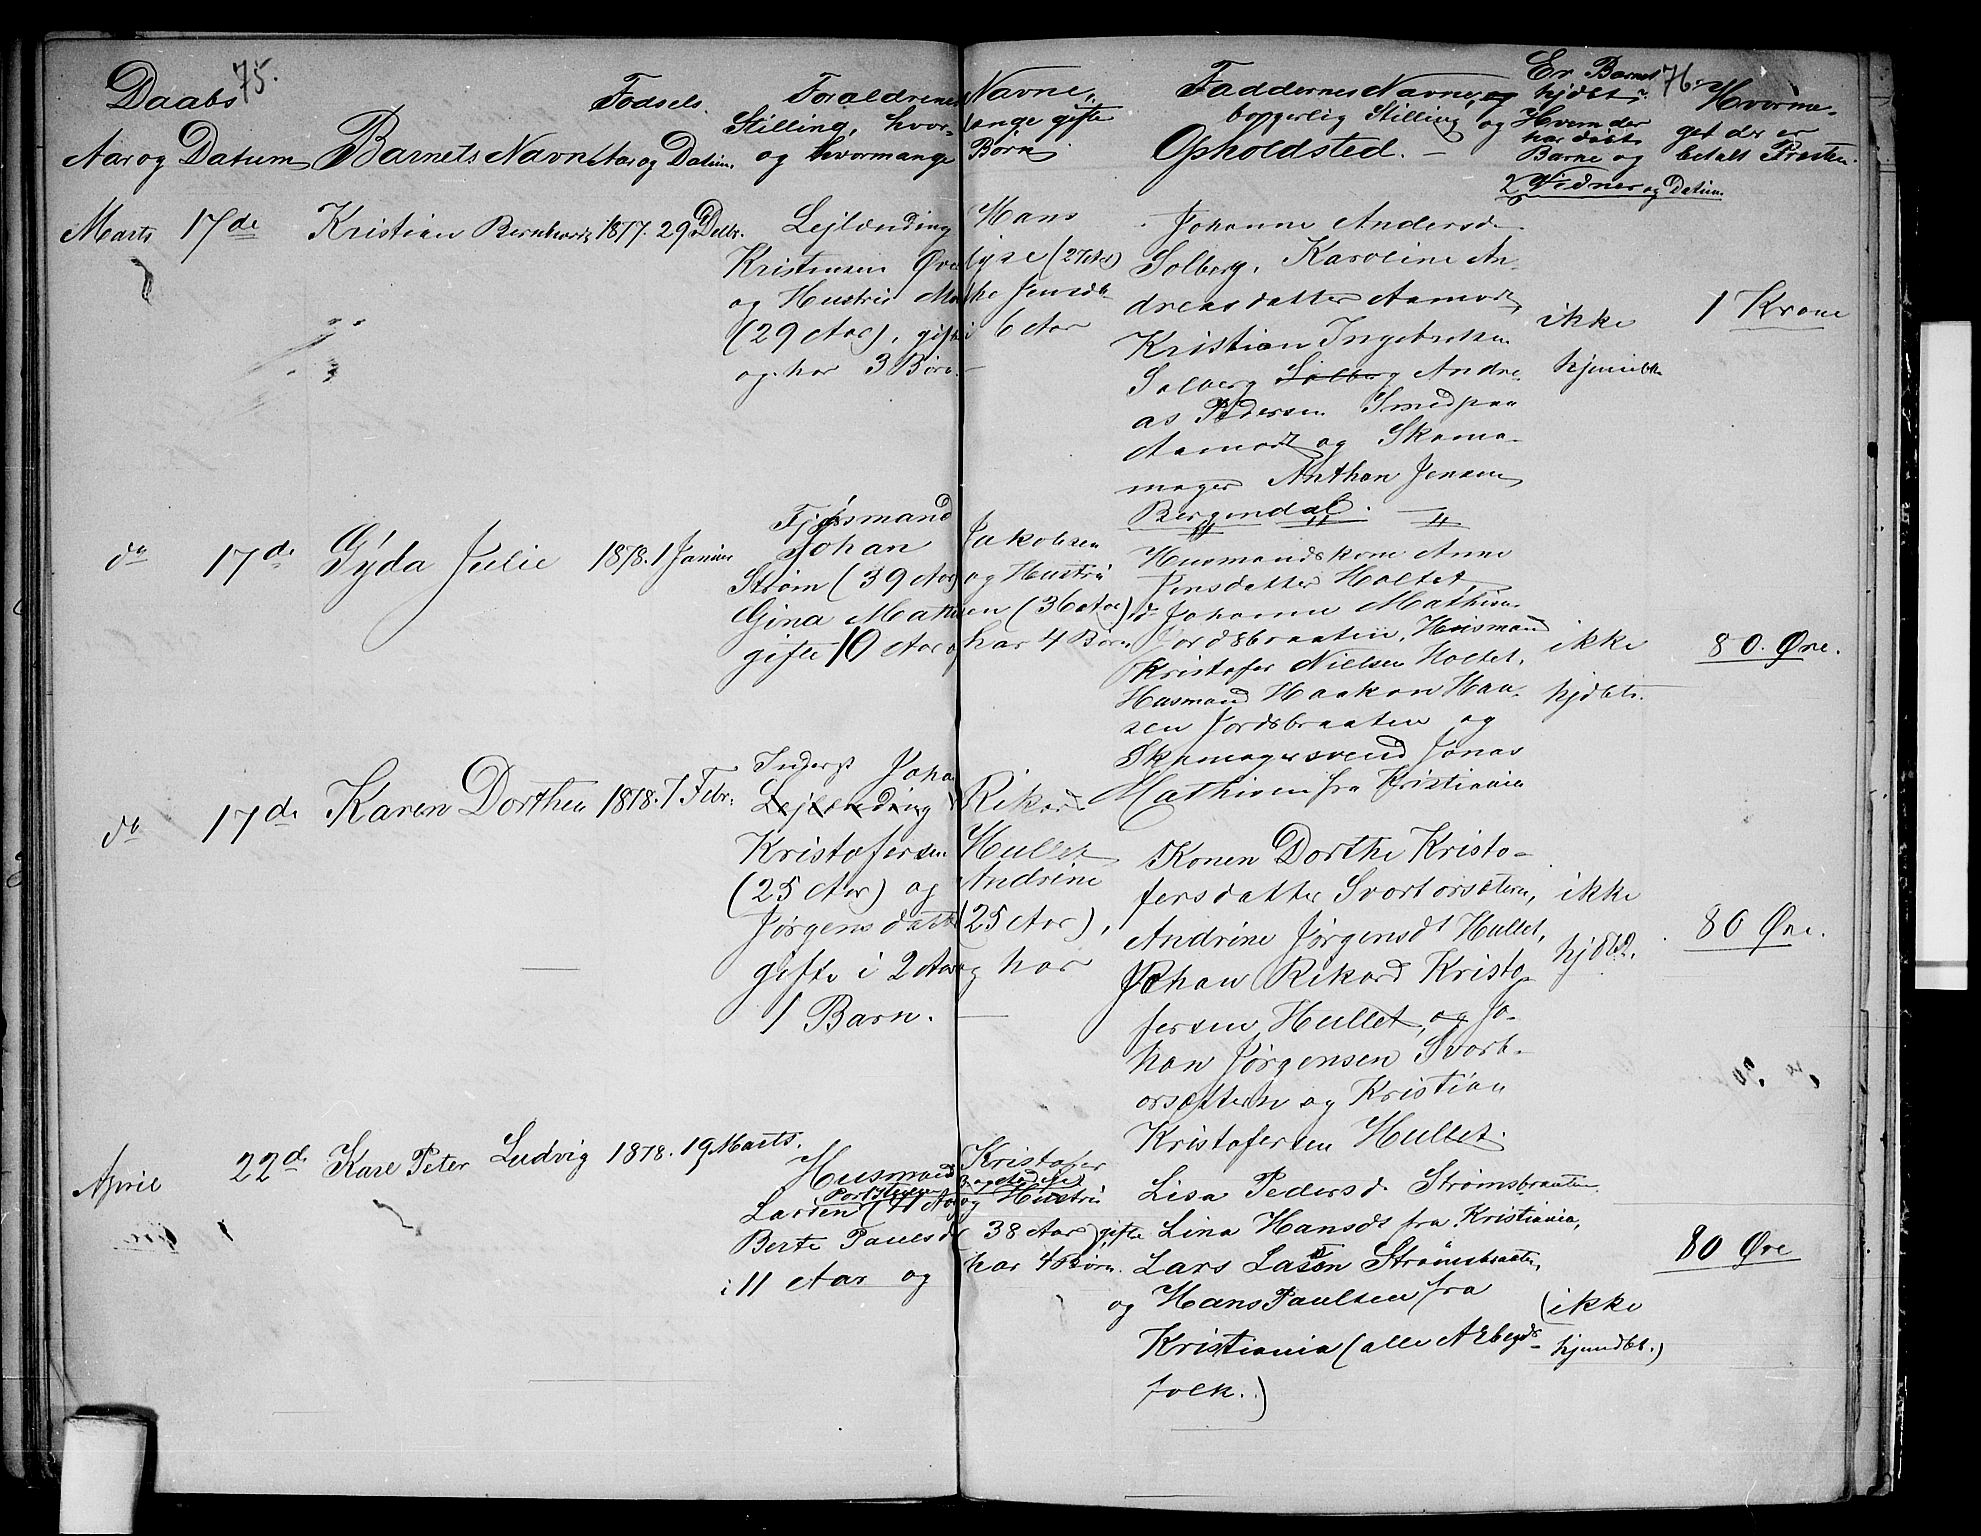 75.
Daabs
Aar og Datum
Barnets Navn
Fødsels
Aar og Datum.
Forældrenes Navne,
Stilling, hvor længe gifte
og hvormange Børn.
Faddernes Navne,
borgerlig Stilling og
Opholdsted. —
76.
Er Barnet
hjdøbt?
Hvem der
har døbt
Barne og
2 Vidner og Datum.
Hvorme-
get der er
betalt Præsten.
Marts 17de
Kristian Bernhard
1877. 29 Decbr.
Lejlænding Hans
Kristensen (27 Aar)
og Hustru Jensdtr
(29 Aar), gifte i 6 Aar
og har 3 Børn —
Johanne Andersd
Solberg, Karoline An-
dreasdatter Aamodt,
Kristian Ingebretsen
Solberg Solberg Andre-
as Pedersen Smedpaa
Aamodt og Skoma-
mager Anthon Jensen
Bergendal. —
ikke
1 Krone
do 17de
Gyda Julie
1878. 1 Januar
Fjøsmand
Johan Jakobsen
Strøm (39 Aar) og Hustru
Gina Mathisen (36 Aar)
gifte 10 Aar og har 4 Børn
Husmandskone Anne
Jensdatter Holtet,
do Johanne Mathisen
Jordsbraaten, Husmand
Kristofer Nielsen Holtet,
Husmand Haakon Han-
sen Jordsbraaten og
Skomagersvend Jonas
Mathisen fra Kristiania
ikke
hjdøbt.
80. Øre.
do 17de
Karen Dorthea
1878. 7 Febr.
Inderst Johan Rikard
Lejlænding
Kristofersen Hullet
(25 Aar) og Andrine
Jørgensdatter (25 Aar),
gifte i 2 Aar og har
1 Barn. —
Konen Dorthe Kristo-
fersdatter Svortorsæteren,
Andrine Jørgensdt Hullet,
Johan Rikard Kristo-
fersen Hullet, og Jo-
han Jørgensen Svort-
orsætteren og Kristian
Kristofersen Hullet.
ikke
hjdøbt.
80 Øre.
April 22de
Karl Peter Ludvig
1878. 19 Marts.
Husmand Kristofer
Larsen (41 Aar) og Hustru
Berte Paulsdr (38 Aar) gifte
i 11 Aar og har 4 Børn.
Lisa Pedersd. Strømsbraaten.
Lina Hansdt fra Kristiania,
Lars Lasen Strømsbraaten,
og Hans Paulsen fra
Kristiania (alle Arbeyds-
folk.)
(ikke
80 Øre